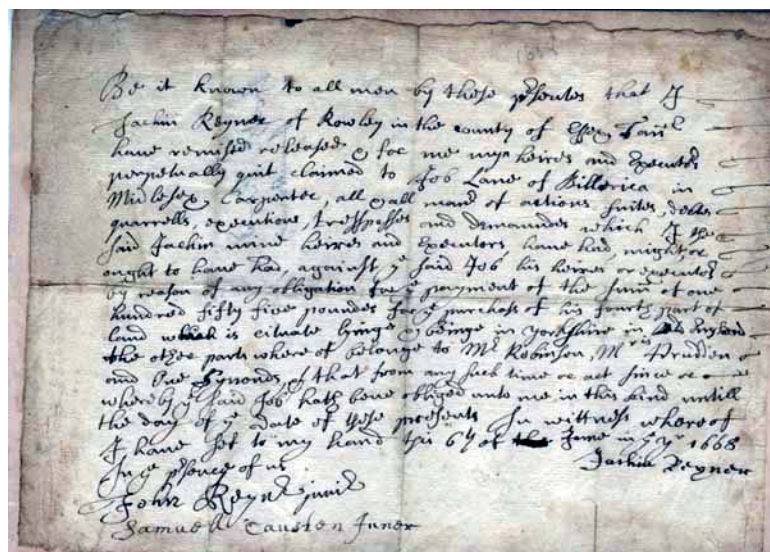 1668
Be it known to all men by these psentes that I
Jachin Reyner of Rowley in the county of Essex
have remised released & for me my heires and executors
perpetually quit claimed to Job Lane of Billerica in
Midlesex, Carpenter, all & all maner of actions suites, debtes
quarrells, executions, tresspesses and demaundes which I the
said Jachin mine heires and executors, have had, might, or
ought to have had, against ye said Job his heires or executors
by reason of any obligation for ye payment of the sume of one
hundred fifty five poundes for ye purchase of his fourth part of
land which is cituate lyinge & beinge in yorkshire in old England
the other parts where of belonge to Mr Robinson, Mris Prudden
and One Symonds, & that from any such time or act since or
whereby ye said Job hath bene obliged unto me in this kind untill
the day of ye date of these presents In wittness whereof
I have set to my hand this 6th of June in ye yr 1668
In ye psence of us
Jachin Reyner
John Reyner junir
Samuell Juner